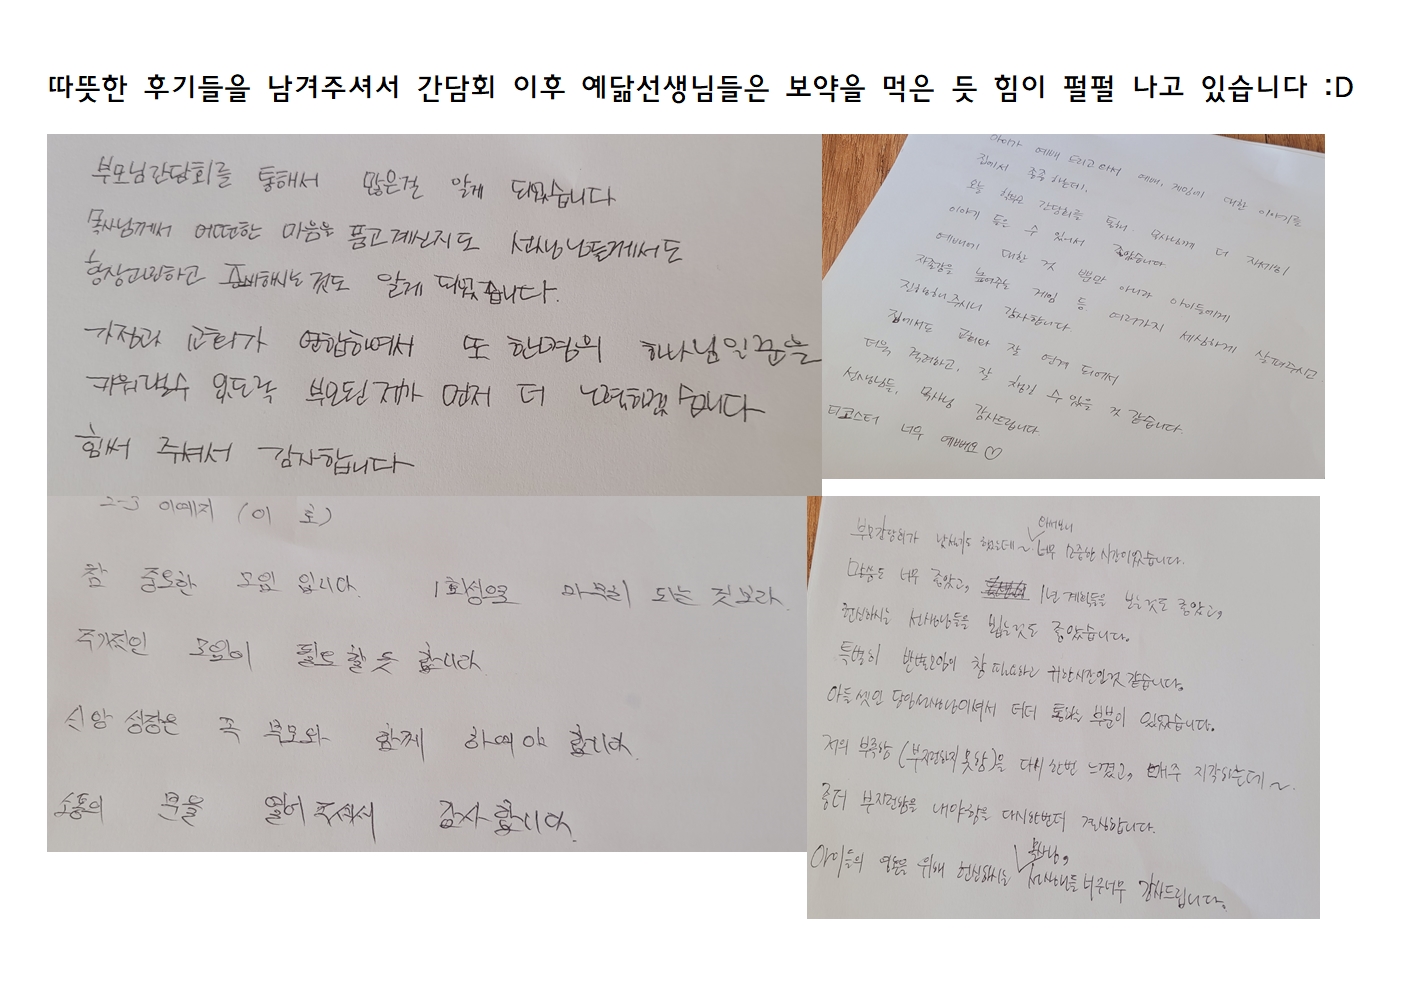 따뜻한 후기들을 남겨주셔서 간담회 이후 예닮선생님들은 보약을 먹은 듯 힘이 펄펄 나고 있습니다 :D
부모님간담회를 통해서 많은걸 알게 되었습니다
목사님께서 어떠한 마음을 품고계신지도 선생님들께서도
굉장고민하고 준비해시는것도 알게 되었습니다.
가정과 교회가 연합하여서 또 한명의 하나님일꾼을
키워갈수 있도록 부모된 제가 먼저 더 노력하겠습니다
힘써 주셔서 감사합니다
아이가 예배 드리고 와서 예배, 게임에 대한 이야기를
집에서 종종 하는데,
오늘 간담회를 통해 목사님께 더 자세히
이야기 들을 수 있어서 좋았습니다
예배에 대한 것 뿐만 아니라 아이들에게
자존감을 높여주는 게임 등 여러가지 세심하게 살펴주시고
진행해주시니 감사합니다
집에서도 교회와 잘 연계 되어서
더욱 격려하고, 잘 챙길 수 있을 것 같습니다.
선생님들, 목사님 감사드립니다.
티코스터 너무 예뻐요♡
2-3 이예지 (이 호)
참 중요한 모임 입니다. 1회성으로 마무리 되는 것 보다.
주기적인 모임이 필요 할 듯 합니다
신앙 성장은 꼭 부모와 함께 하여야 합니다.
소통의 문을 열어 주셔서 감사 합니다.
부모간담회가 낯설기도 했는데~ 와보니 너무 소중한 시간이었습니다.
말씀도 너무 좋았고, 1년 계획들을 보는것도 좋았고,
헌신하시는 선생님들을 뵙는것도 좋았습니다.
특별히 반별모임이 참 필요하고 귀한시간인것 같습니다.
아들 셋인 담임선생님이셔서 더더 통하는 부분이 있었습니다.
저의 부족함 (부지런하지 못함)을 다시 한번 느꼈고, 매주 지각하는데~
좀더 부지런함을 내야함을 다시한번더 결심합니다.
아이들의 영혼을 위해 헌신하시는 목사님, 선생님들 너무너무 감사드립니다.